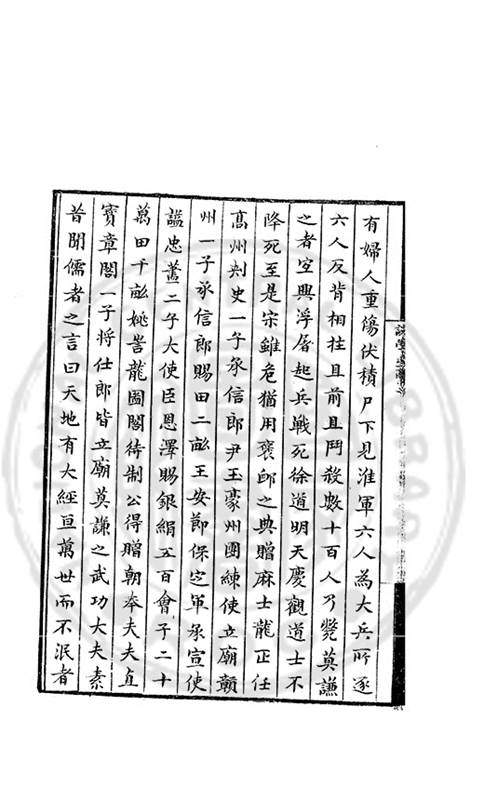 有婦人重傷伏積尸下見淮軍六人為大兵所逐
六人反背相拄且前且鬥殺數十百人乃斃莫謙
之者空興浮屠起兵戰死徐道明天慶觀道士不
降死至是宋雖危猶用褒卹之典贈麻士龍正任
高州刺史一子承信郎尹玉豪州團練使立廟贛
州一子承信郎賜田二畝王安節保定軍承宣使
謚忠藎二子大使臣恩澤賜銀絹五百會子二十
萬田千畝姚訔龍圖閣待制公得贈朝奉夫夫直
寳章閣一子將仕郎皆立廟莫謙之武功大夫素
昔聞儒者之言曰天地有大經亘萬世而不泯者